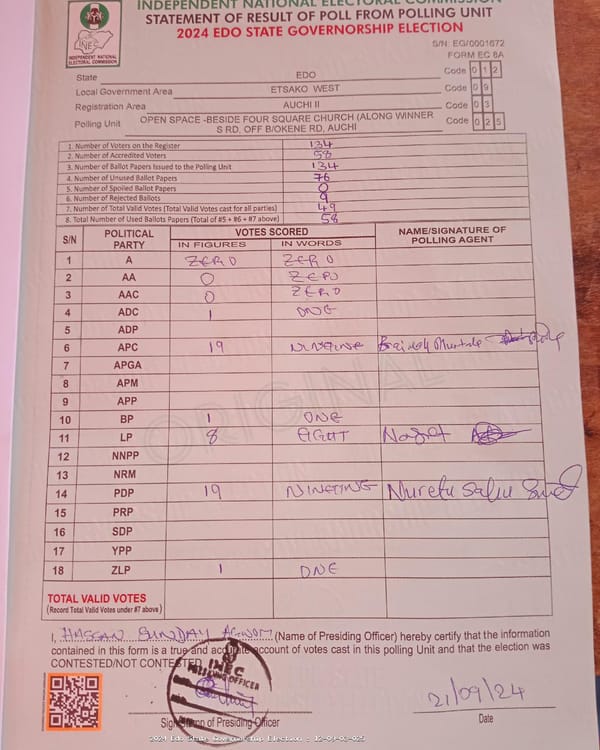 INDEPENDENT NATIONAL ELECTORAL COMMISSION
STATEMENT OF RESULT OF POLL FROM POLLING UNIT
2024 EDO STATE GOVERNORSHIP ELECTION
INEC
INDEPENDENT NATIONAL ELECTORAL COMMISSION
S/N: EG/0001672
FORM EC 8A
State EDO Code 0 1 2
Local Government Area ETSAKO WEST Code 0 9
Registration Area AUCHI II Code 0 3
Polling Unit OPEN SPACE -BESIDE FOUR SQUARE CHURCH (ALONG WINNER S RD, OFF B/OKENE RD, AUCHI Code 0 2 5
1. Number of Voters on the Register 134
2. Number of Accredited Voters 58
3. Number of Ballot Papers Issued to the Polling Unit 134
4. Number of Unused Ballot Papers 76
5. Number of Spoiled Ballot Papers 0
6. Number of Rejected Ballots 9
7. Number of Total Valid Votes (Total Valid Votes cast for all parties) 49
8. Total Number of Used Ballots Papers (Total of #5 + #6 + #7 above) 58
S/N POLITICAL PARTY VOTES SCORED NAME/SIGNATURE OF POLLING AGENT
IN FIGURES IN WORDS
1 A ZERO ZERO
2 AA 0 ZERO
3 AAC 0 ZERO
4 ADC 1 ONE
5 ADP
6 APC 19
7 APGA
8 APM
9 APP
10 BP 1 ONE
11 LP 8 EIGHT
12 NNPP
13 NRM
14 PDP 19 Nuretu Saliu
15 PRP
16 SDP
17 YPP
18 ZLP 1 ONE
ORIGINAL
TOTAL VALID VOTES
(Record Total Valid Votes under #7 above)
I, HASSAN SUNDAY (Name of Presiding Officer) hereby certify that the information
contained in this form is a true and accurate account of votes cast in this polling Unit and that the election was
CONTESTED/NOT CONTESTED.
INEC
PRESIDING OFFICER
21/09/24
Signature of Presiding Officer Date
2024 Edo State Governorship Election : 12-09-03-025